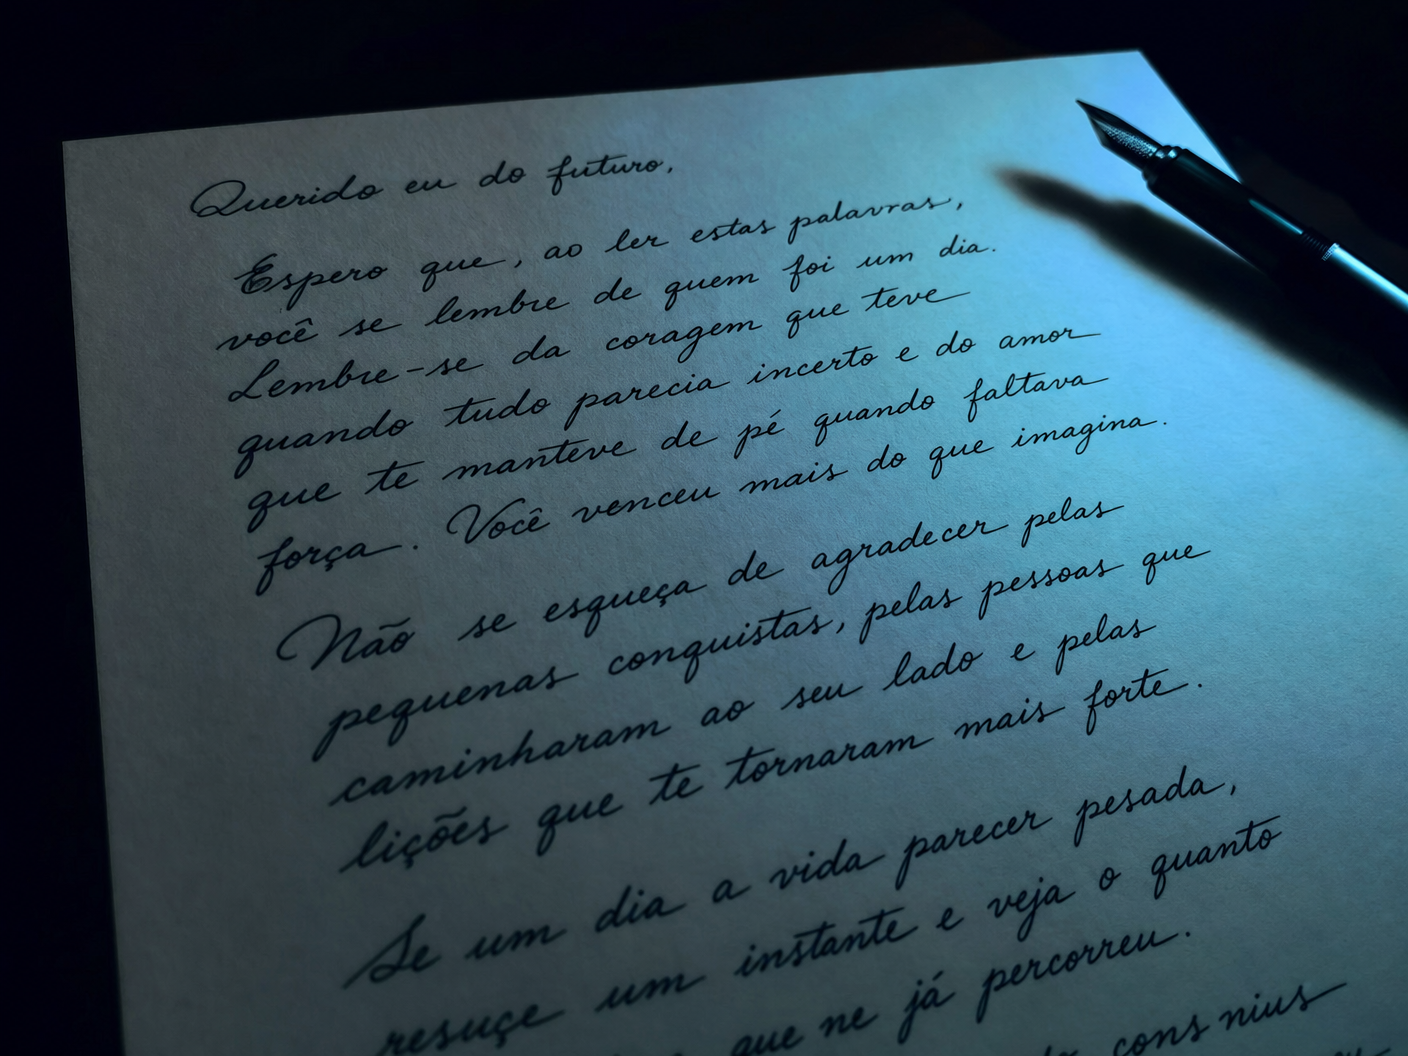 Querido eu do futuro,
Espero que, ao ler estas palavras,
você se lembre de quem foi um dia.
Lembre-se da coragem que teve
quando tudo parecia incerto e do amor
que te manteve de pé quando faltava
força. Você venceu mais do que imagina.
Não se esqueça de agradecer pelas
pequenas conquistas, pelas pessoas que
caminharam ao seu lado e pelas
lições que te tornaram mais forte.
Se um dia a vida parecer pesada,
resuçe um instante e veja o quanto
que ne já percorreu.
cons nius